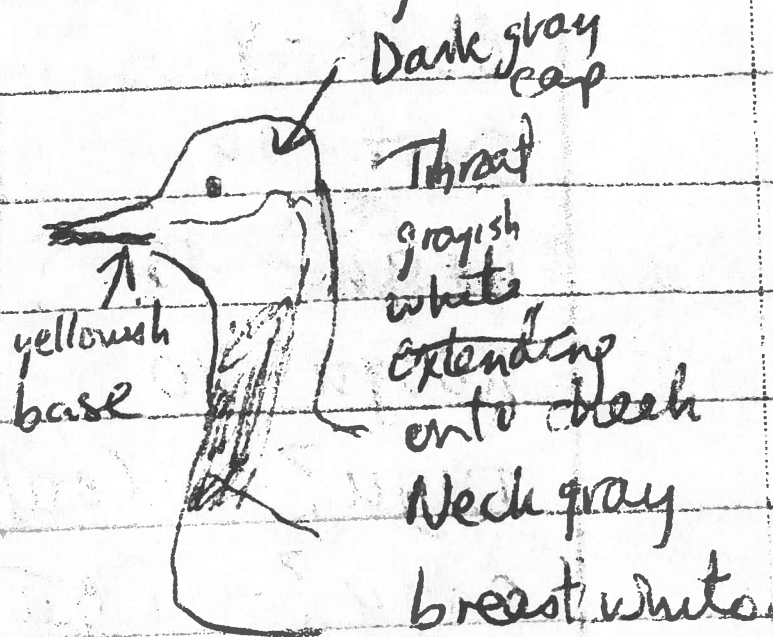 Dark gray
cap
Throat
grayish
white
extending
onto cheek
Neck gray
breast white
yellowish
base